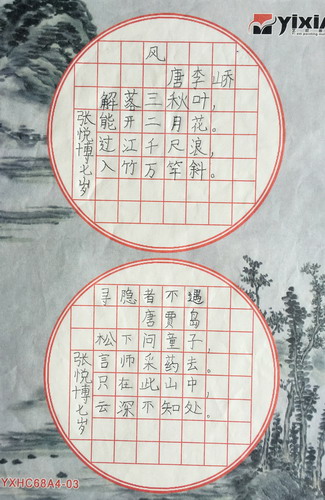 YIXIA
风
唐李峤
解落三秋叶，
能开二月花。
过江千尺浪，
入竹万竿斜。
张悦博七岁
寻隐者不遇
唐贾岛
松下问童子，
言师采药去。
只在此山中，
云深不知处。
张悦博七岁
YXHC68A4-03